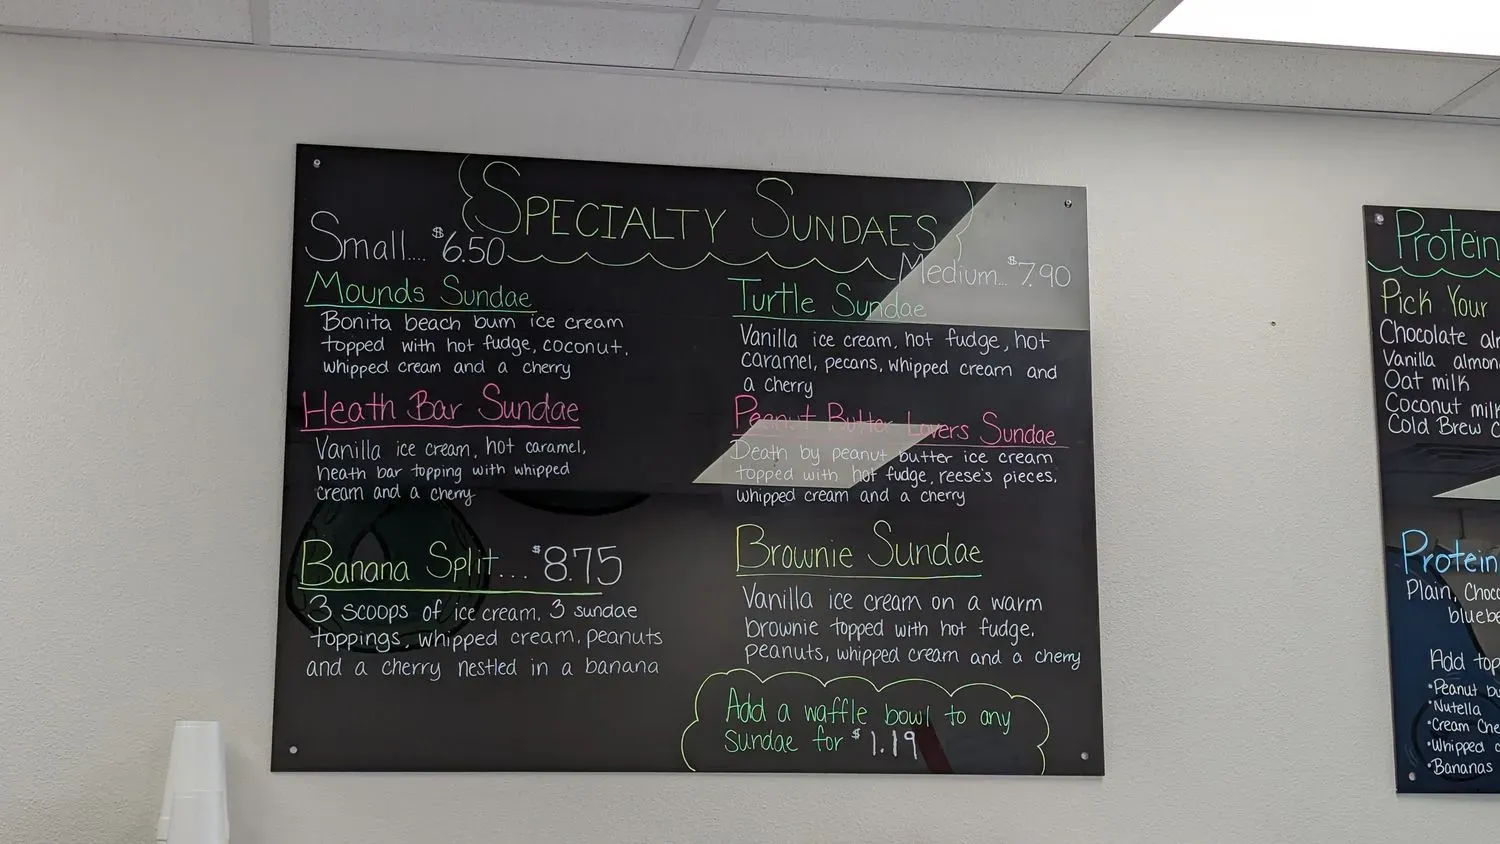 Specialty Sundaes
Small.... $6.50
Medium... $7.90
Mounds Sundae
Bonita beach bum ice cream
topped with hot fudge, coconut,
whipped cream and a cherry
Heath Bar Sundae
Vanilla ice cream, hot caramel,
heath bar topping with whipped
cream and a cherry
Banana Split... $8.75
3 scoops of ice cream, 3 sundae
toppings, whipped cream, peanuts
and a cherry nestled in a banana
Turtle Sundae
Vanilla ice cream, hot fudge, hot
caramel, pecans, whipped cream and
a cherry
Peanut Butter Lovers Sundae
Death by peanut butter ice cream
topped with hot fudge, reese's pieces,
whipped cream and a cherry
Brownie Sundae
Vanilla ice cream on a warm
brownie topped with hot fudge,
peanuts, whipped cream and a cherry
Add a waffle bowl to any
sundae for $1.19
Protein
Pick Your
Chocolate
Vanilla
Oat milk
Coconut
Cold Brew
Protein
Plain,
Add
•Peanut
•Nutella
•Cream
•Whipped
•Bananas